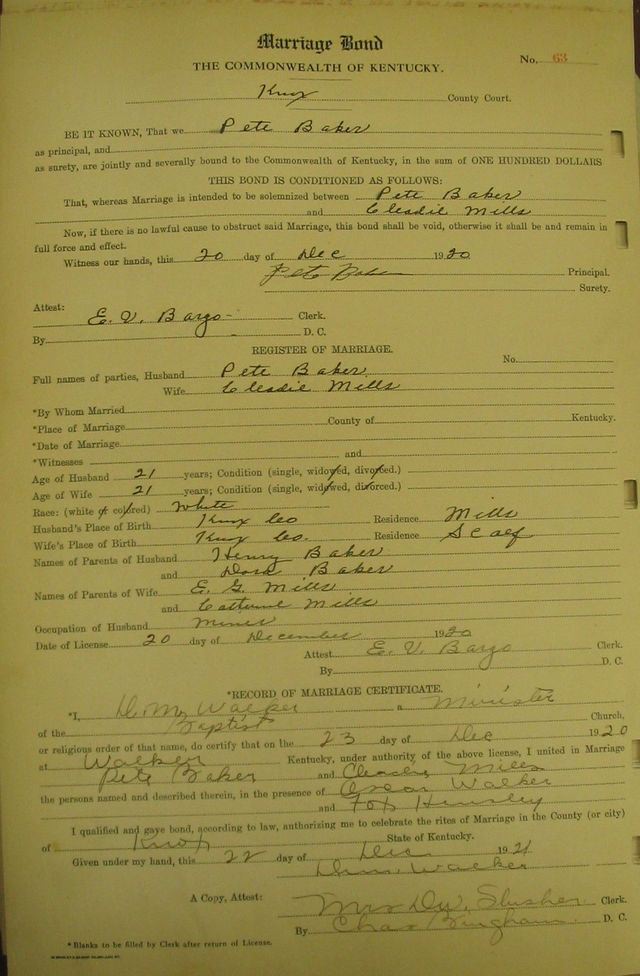 Marriage Bond
THE COMMONWEALTH OF KENTUCKY. No. 63
Knox County Court.
BE IT KNOWN, That we Pete Baker
as principal, and
as surety, are jointly and severally bound to the Commonwealth of Kentucky, in the sum of ONE HUNDRED DOLLARS
THIS BOND IS CONDITIONED AS FOLLOWS:
That, whereas Marriage is intended to be solemnized between Pete Baker
and Cleadie Mills
Now, if there is no lawful cause to obstruct said Marriage, this bond shall be void, otherwise it shall be and remain in
full force and effect.
Witness our hands, this 20 day of Dec 1920
Pete Baker Principal.
Surety.
Attest:
E. V. Bargo Clerk.
By D. C.
REGISTER OF MARRIAGE.
No.
Full names of parties, Husband Pete Baker
Wife Cleadie Mills
*By Whom Married
*Place of Marriage County of Kentucky.
*Date of Marriage
*Witnesses and
Age of Husband 21 years; Condition (single, widowed, divorced.)
Age of Wife 21 years; Condition (single, widowed, divorced.)
Race: (white or colored) White
Husband's Place of Birth Knox Co Residence Mills
Wife's Place of Birth Knox Co. Residence Scalf
Names of Parents of Husband Henry Baker
and Dora Baker
Names of Parents of Wife E. G. Mills
and Catherine Mills
Occupation of Husband Miner
Date of License 20 day of December 1920
Attest E. V. Bargo Clerk.
By D. C.
*RECORD OF MARRIAGE CERTIFICATE.
*I, D. M. Walker a Minister
of the Baptist Church,
or religious order of that name, do certify that on the 23 day of Dec 1920
at Walker Kentucky, under authority of the above license, I united in Marriage
Pete Baker and Mills
the persons named and described therein, in the presence of Oscar Walker
and Fox Hensley
I qualified and gave bond, according to law, authorizing me to celebrate the rites of Marriage in the County (or city)
of Knox State of Kentucky.
Given under my hand, this 22 day of Dec 1921
D. M. Walker
A Copy, Attest: Mrs. Slusher Clerk.
By Chas Bingham D. C.
*Blanks to be filled by Clerk after return of License.